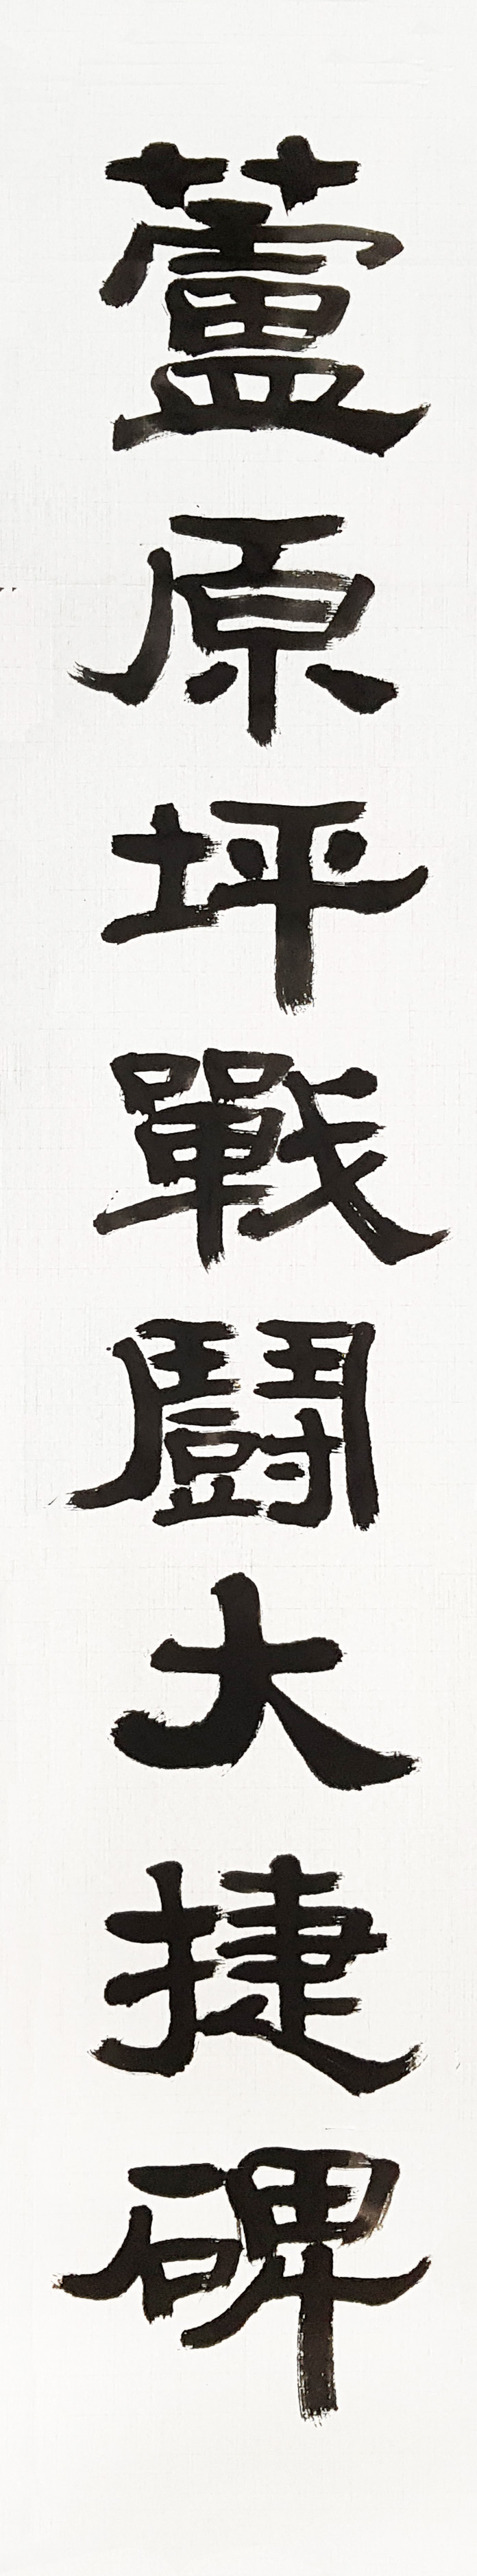 蘆原坪戰鬪大捷碑